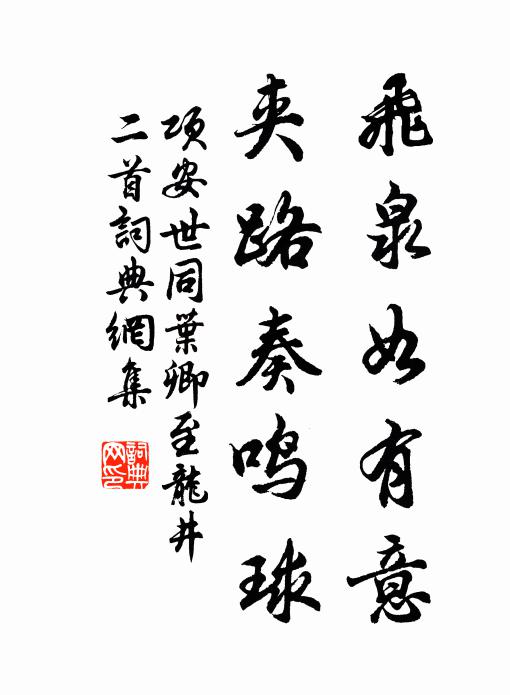 飛泉如有意
夾路奏鳴球
項安世同葉卿至龍井
二首詞典網集
詞典
网印